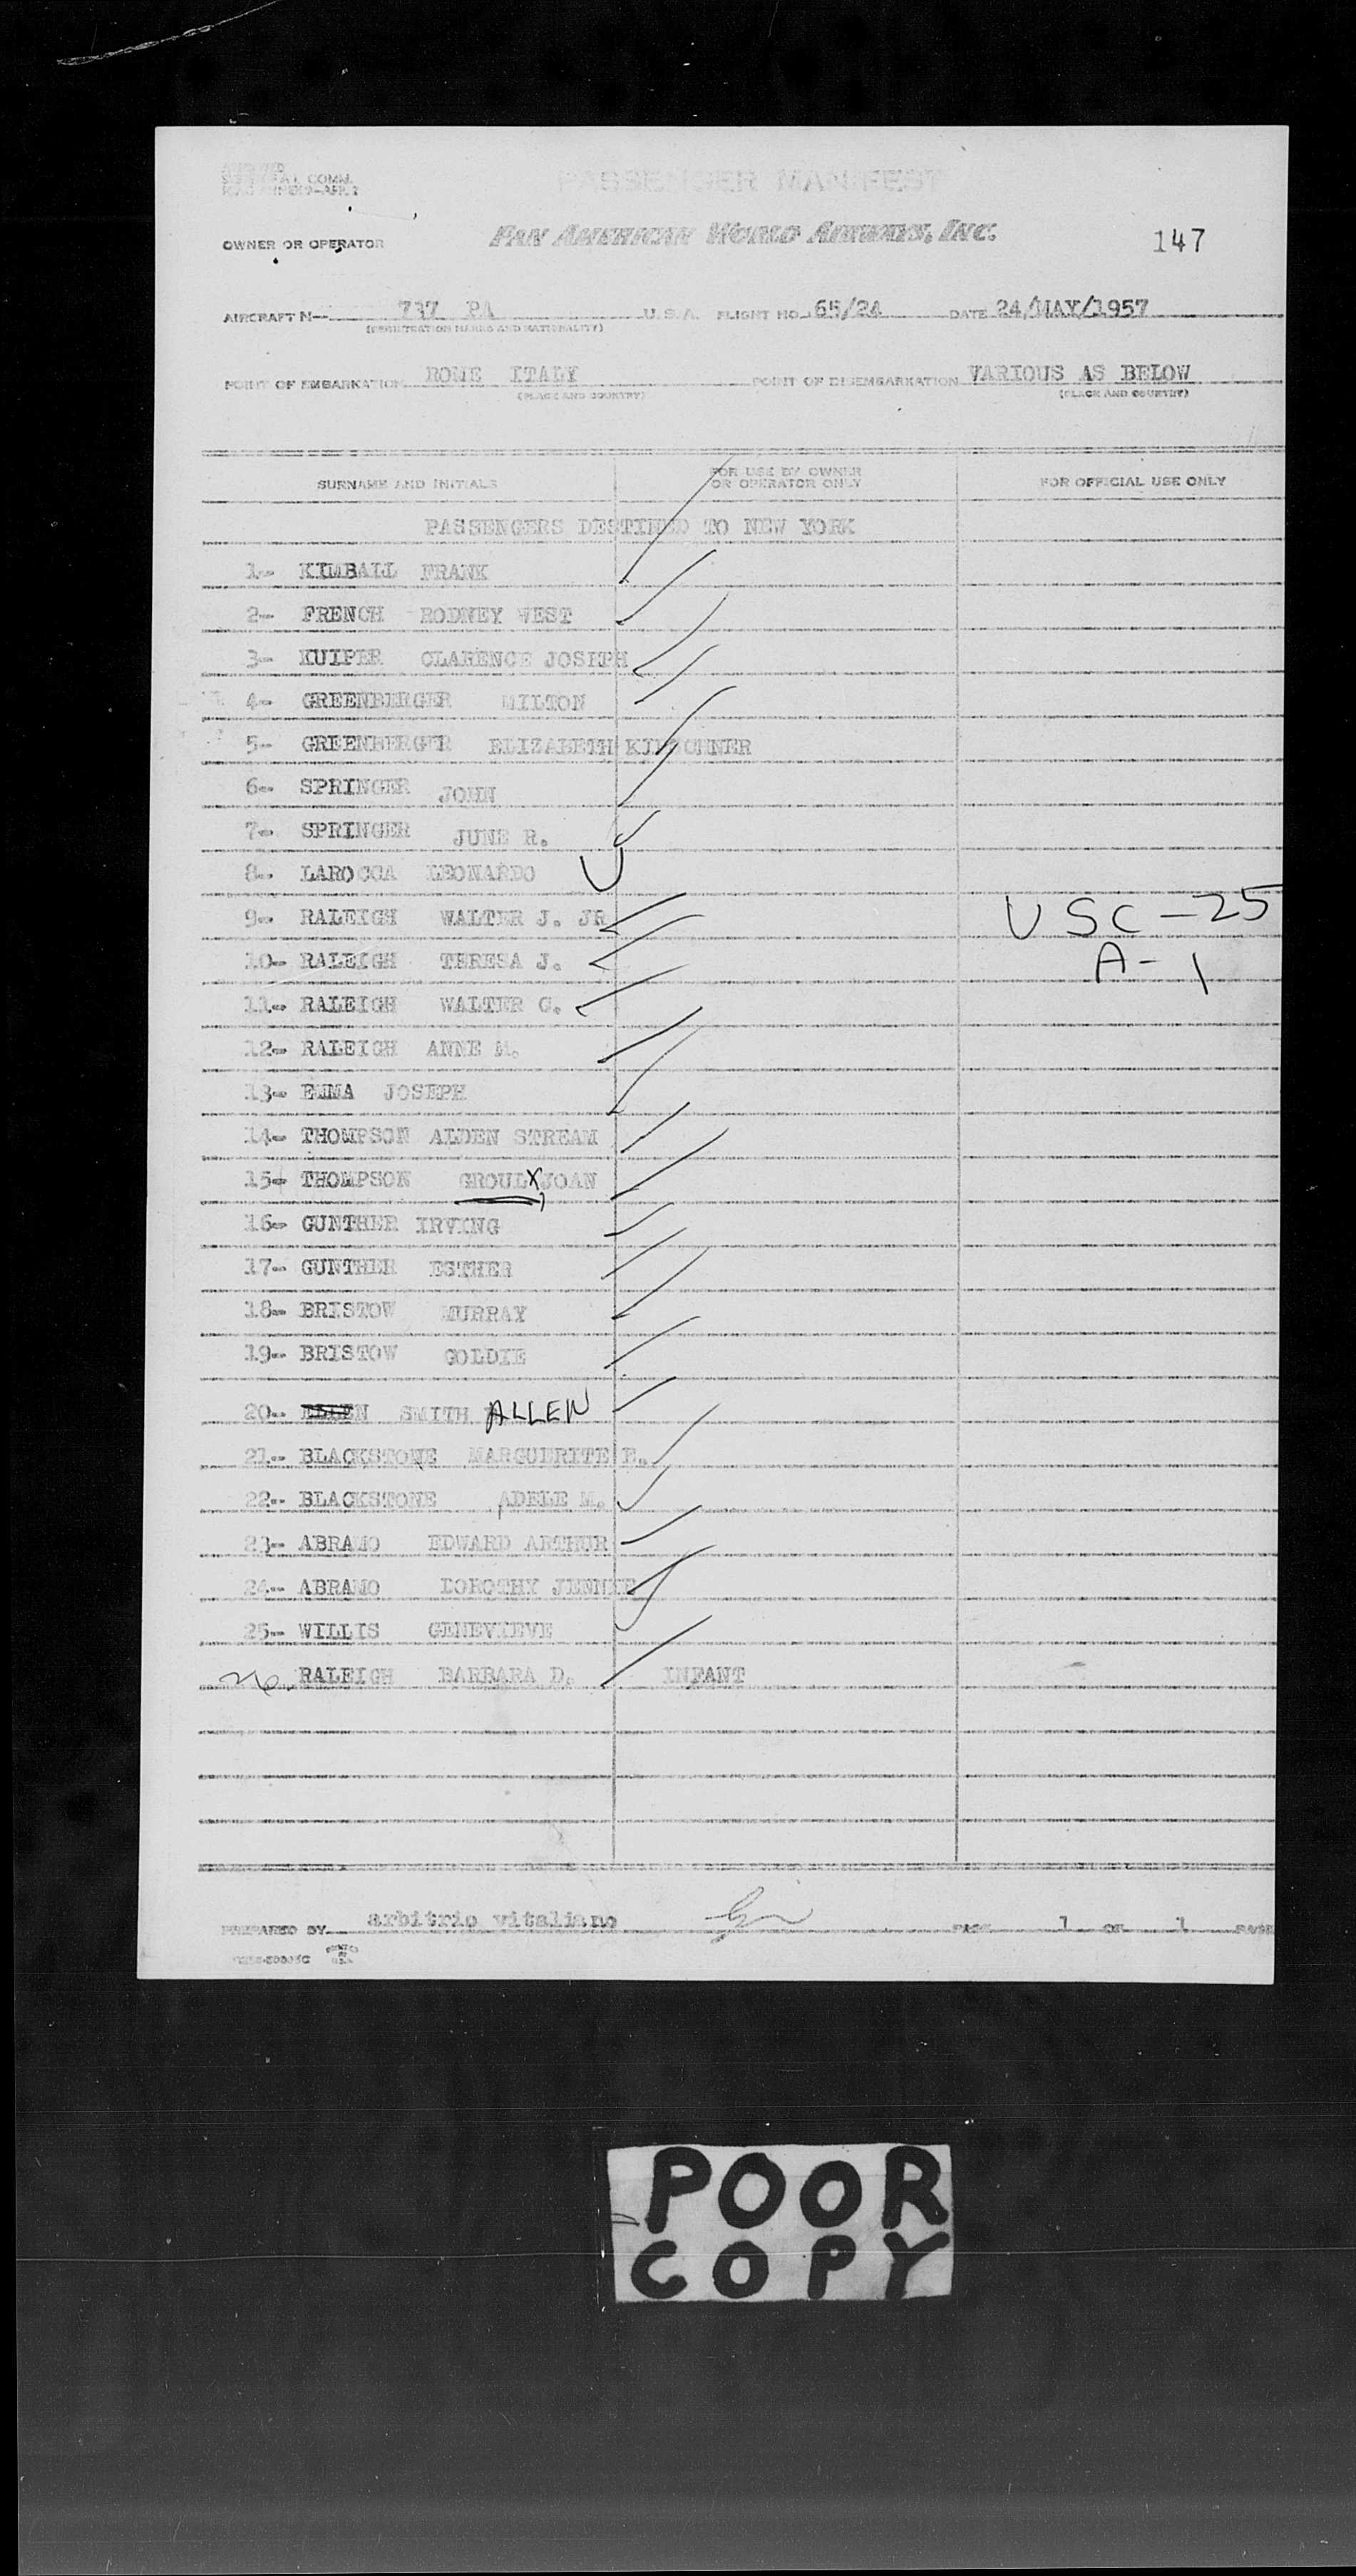 COMM.
PASSENGER MANIFEST
OWNER OR OPERATOR PAN AMERICAN WORLD AIRWAYS, INC. 147
AIRCRAFT N-- 737 PA U.S.A. FLIGHT NO. 65/24 DATE 24/MAY/1957
(REGISTRATION MARKS AND NATIONALITY)
POINT OF EMBARKATION ROME ITALY POINT OF DISEMBARKATION VARIOUS AS BELOW
(PLACE AND COUNTRY) (PLACE AND COUNTRY)
SURNAME AND INITIALS FOR USE BY OWNER OR OPERATOR ONLY FOR OFFICIAL USE ONLY
PASSENGERS DESTINED TO NEW YORK
1- KIMBALL FRANK
2- FRENCH RODNEY WEST
3- KUIPER CLARENCE JOSEPH
4- GREENBERGER MILTON
5- GREENBERGER ELIZABETH KIRSCHNER
6- SPRINGER JOHN
7- SPRINGER JUNE R.
8- LAROCCA LEONARDO
9- RALEIGH WALTER J. JR USC-25
10- RALEIGH THERESA J. A-1
11- RALEIGH WALTER G.
12- RALEIGH ANNE M.
13- EMMA JOSEPH
14- THOMPSON ALDEN STREAM
15- THOMPSON GROULX, JOAN
16- GUNTHER IRVING
17- GUNTHER ESTHER
18- BRISTOW MURRAY
19- BRISTOW GOLDIE
20- SMITH ALLEN
21- BLACKSTONE MARGUERITE E.
22- BLACKSTONE ADELE M.
23- ABRAMO EDWARD ARTHUR
24- ABRAMO DOROTHY JENNIE
25- WILLIS GENEVIEVE
26. RALEIGH BARBARA D. INFANT
PREPARED BY arbitrio vitaliano PAGE 1 OF 1 PAGE
POOR
COPY